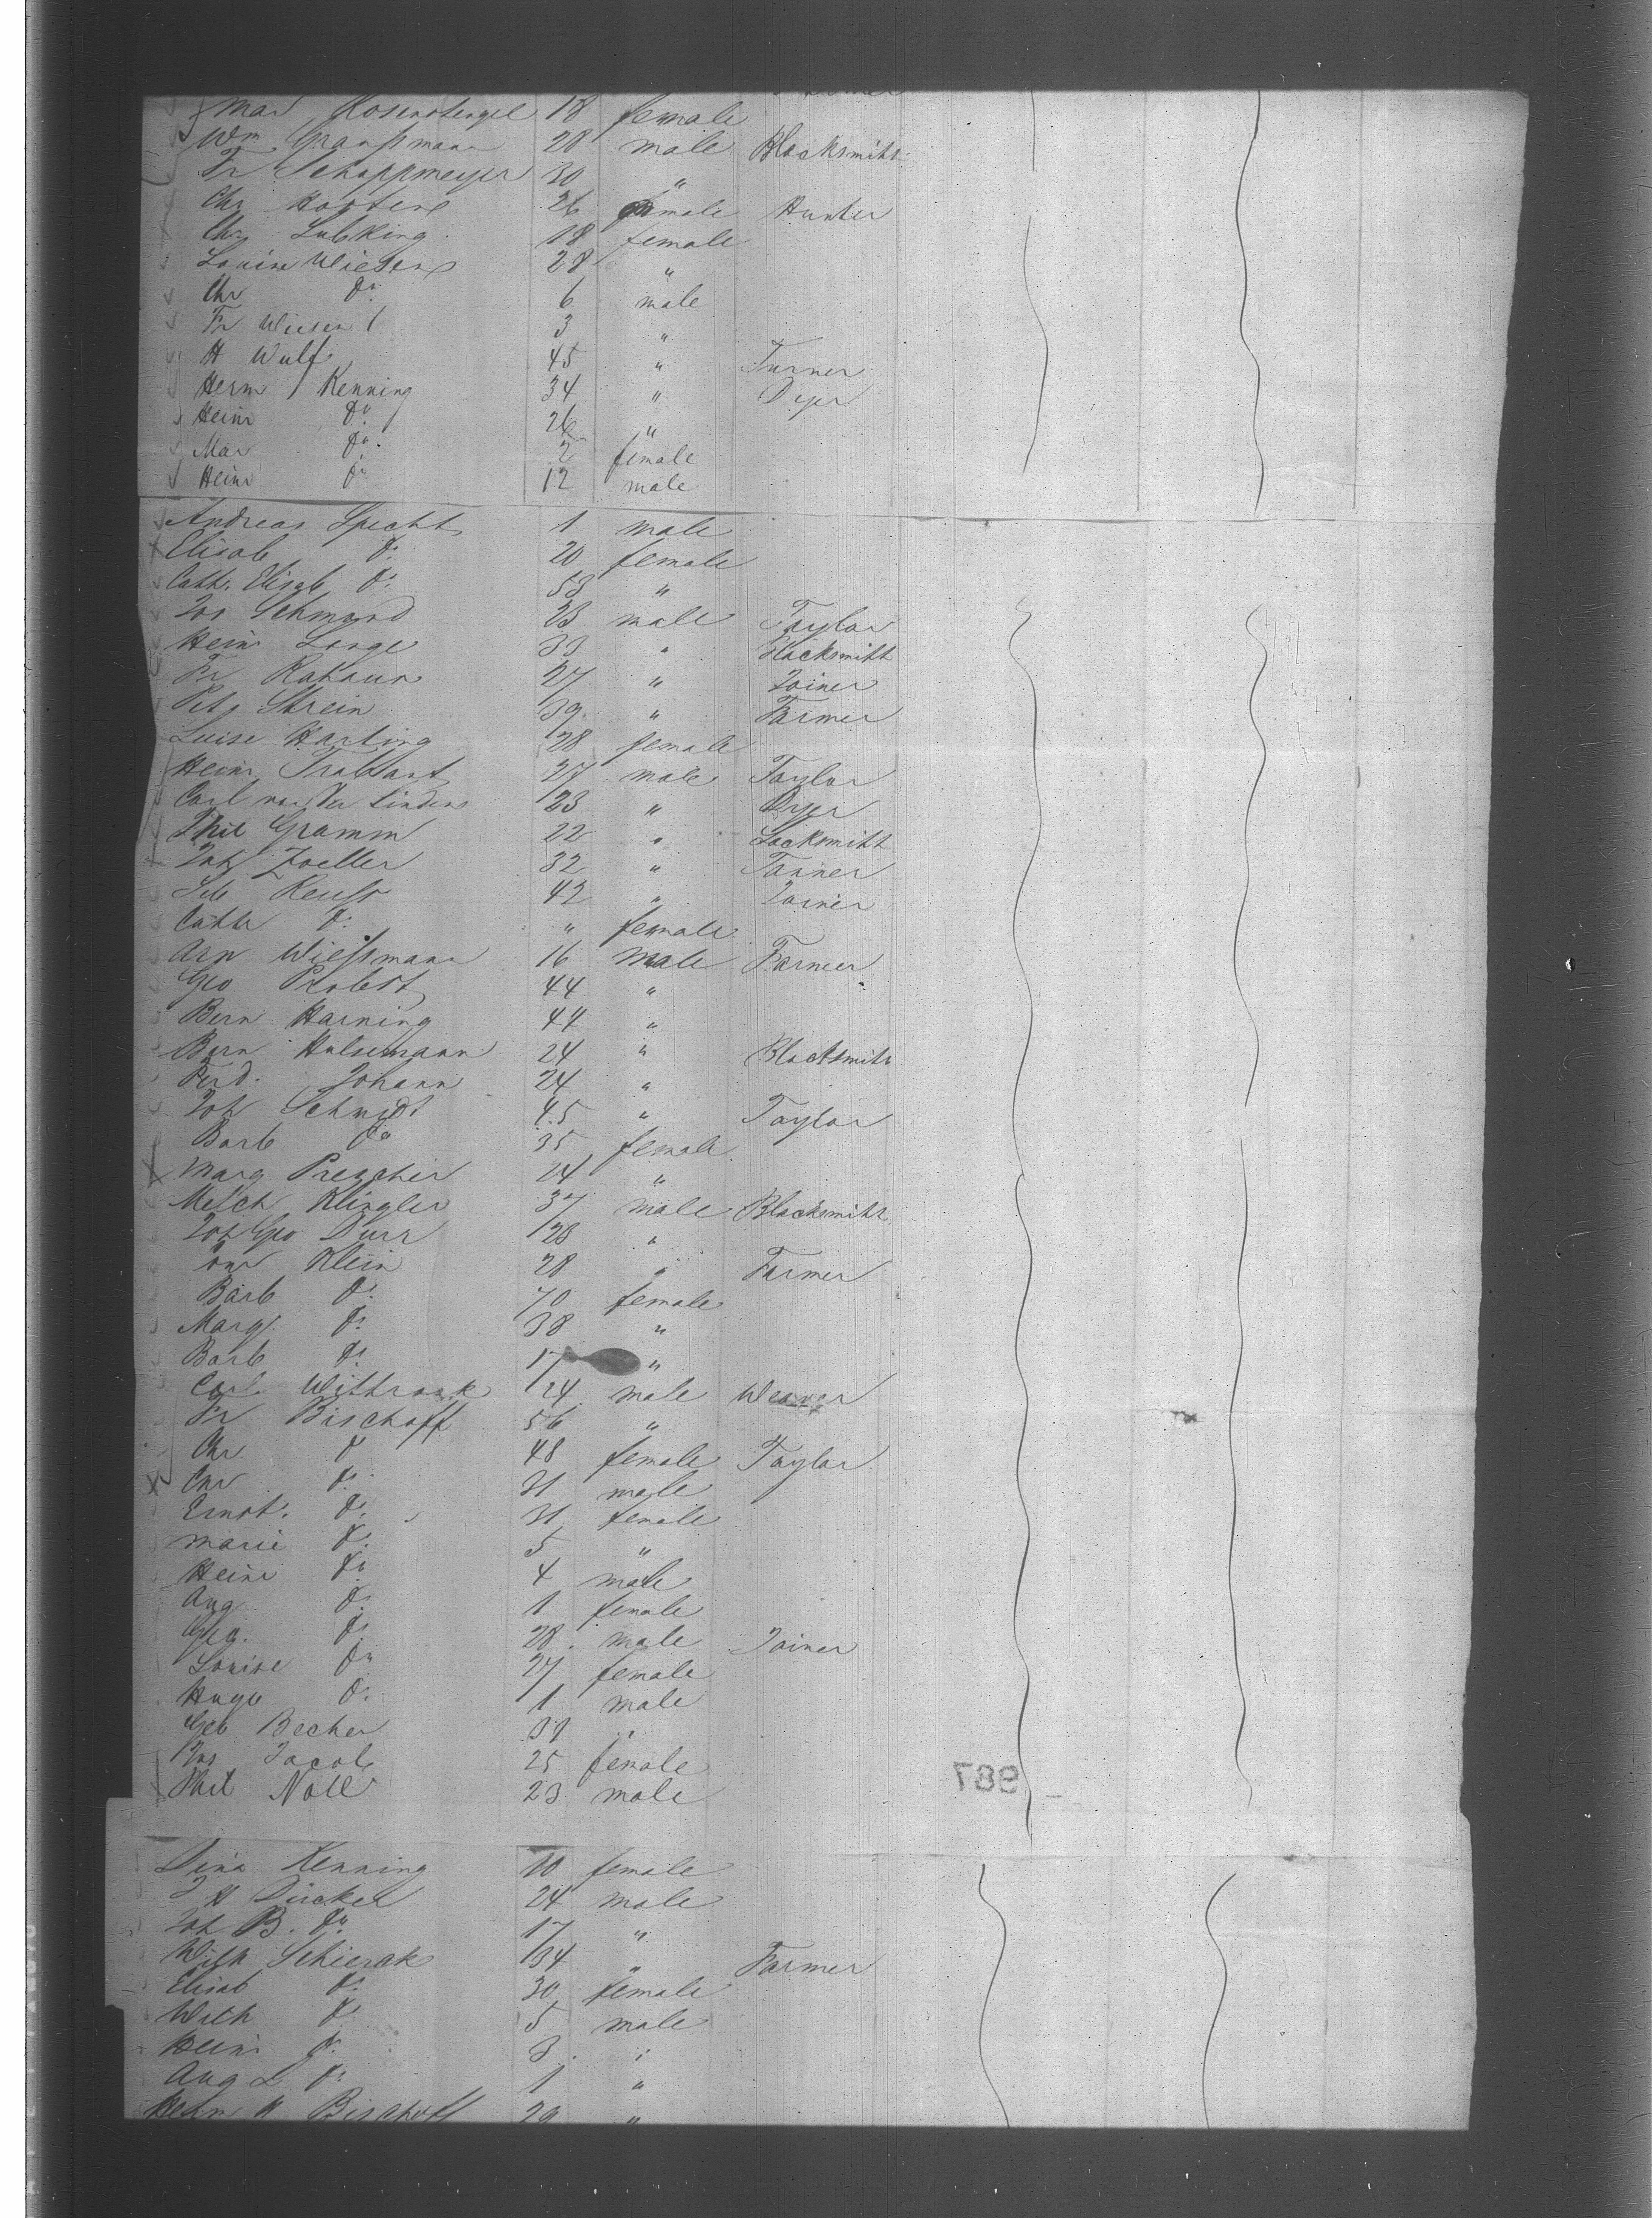 Mar Rosenstengel 18 female
Wm 28 male Blacksmith
Fr Schappmeyer 30 "
Chr 26 male Hunter
Chr Lubking 18 female
Louise Wiesen 28 "
Chr Do 6 male
Fr Wiesen 3 "
H Wulf 45 " Turner
Herm Kenning 34 " Dyer
Heinr Do 26 "
Mar Do 2 female
Heinr Do 12 male
Andreas Specht 1 male
Elisab Do 20 female
Cath. Elisab Do 58 "
Jos Schmand 23 male Taylor
Heinr Lange 33 " Blacksmith
Fr 27 " Joiner
Pet Strein 39 " Farmer
Luise Harting 28 female
Heinr Trabant 27 male Taylor
Carl von der Linden 23 " Dyer
Phil Gramm 22 " Locksmith
Joh Zoeller 32 " Tanner
Seb Reuss 42 " Joiner
Cath Do " female
Arn Wiessmann 16 male Farmer
Geo Probst 44 "
Bern Harning 44 "
Bern Hulsemann 24 " Blacksmith
Ferd. Johann 24 "
Joh Schmidt 45 " Taylor
Barb Do 35 female
Marg Prescher 24 "
Melch Klingler 37 male Blacksmith
Joh Geo Durr 28 "
Klein 28 " Farmer
Barb Do 70 female
Marg. Do 38 "
Barb Do 17 "
Carl 24 male Weaver
Fr Bischoff 56 "
Chr Do 48 female Taylor
Chr Do 31 male
Ernst. Do 31 female
Marie Do 5 "
Heinr Do 4 male
Aug Do 1 female
Geo. Do 28 male Joiner
Louise Do 27 female
Hugo Do 1 male
Geo Becher 39 "
Jacob 25 female
Phil Noll 23 male
789
Dina Kenning 10 female
J H Dücker 24 male
Joh B. Do 17 "
Wilh Schierak 34 " Farmer
Elisab Do 30 female
Wilh Do 5 male
Heinr Do 3 "
Aug L Do 1 "
Herm H Bischoff 29 "